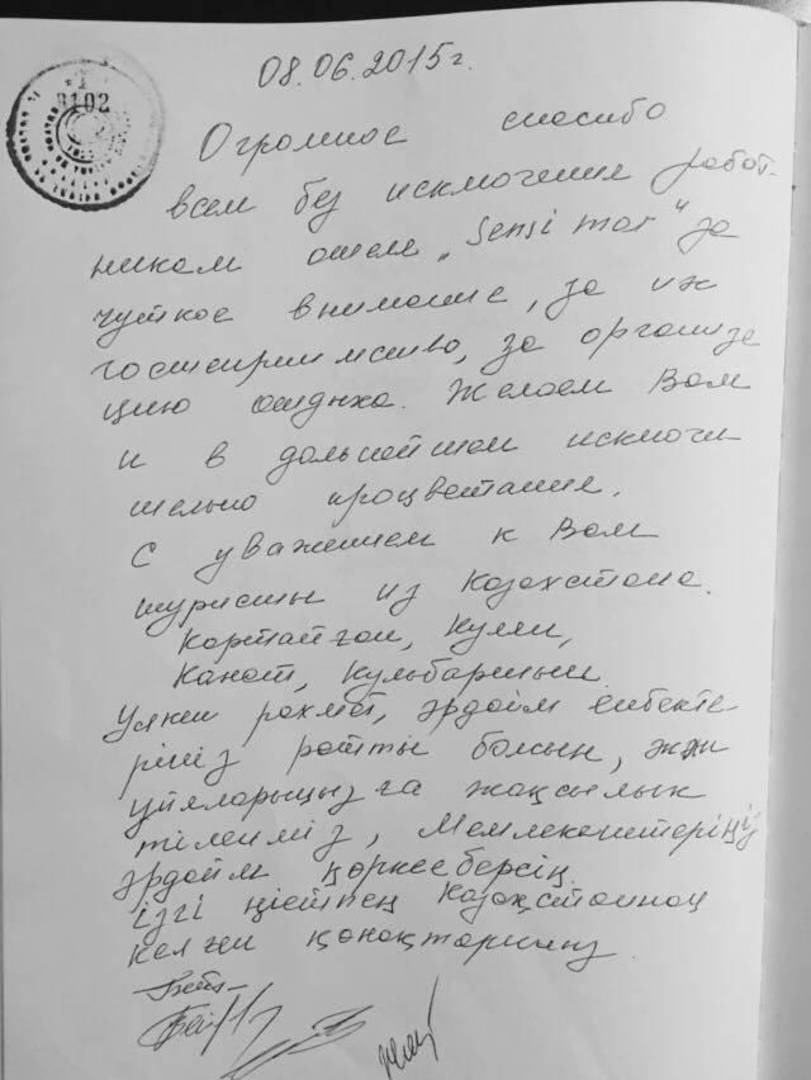 3102
08.06.2015г.
Огромное спасибо
всем без исключения работ-
никам отеля „Sensimar“ за
чуткое внимание, за их
гостеприимство, за организа
цию отдыха. Желаем Вам
и в дальнейшем исключи
тельно процветания.
С уважением к Вам
туристы из Казахстана.
Кортайгон, Куляш,
Канат, Кульбаршын.
Үлкен рахмет, әрдайм еңбекте
ріңіз рәтті болсын, жән
ұйяларыңызға жақсылық
тілейміз, Мемлекеттеріңіз
әрдайм көркееберсің.
Ізгі ниетпен Казақстаннан
келген қонақтарыңыз.